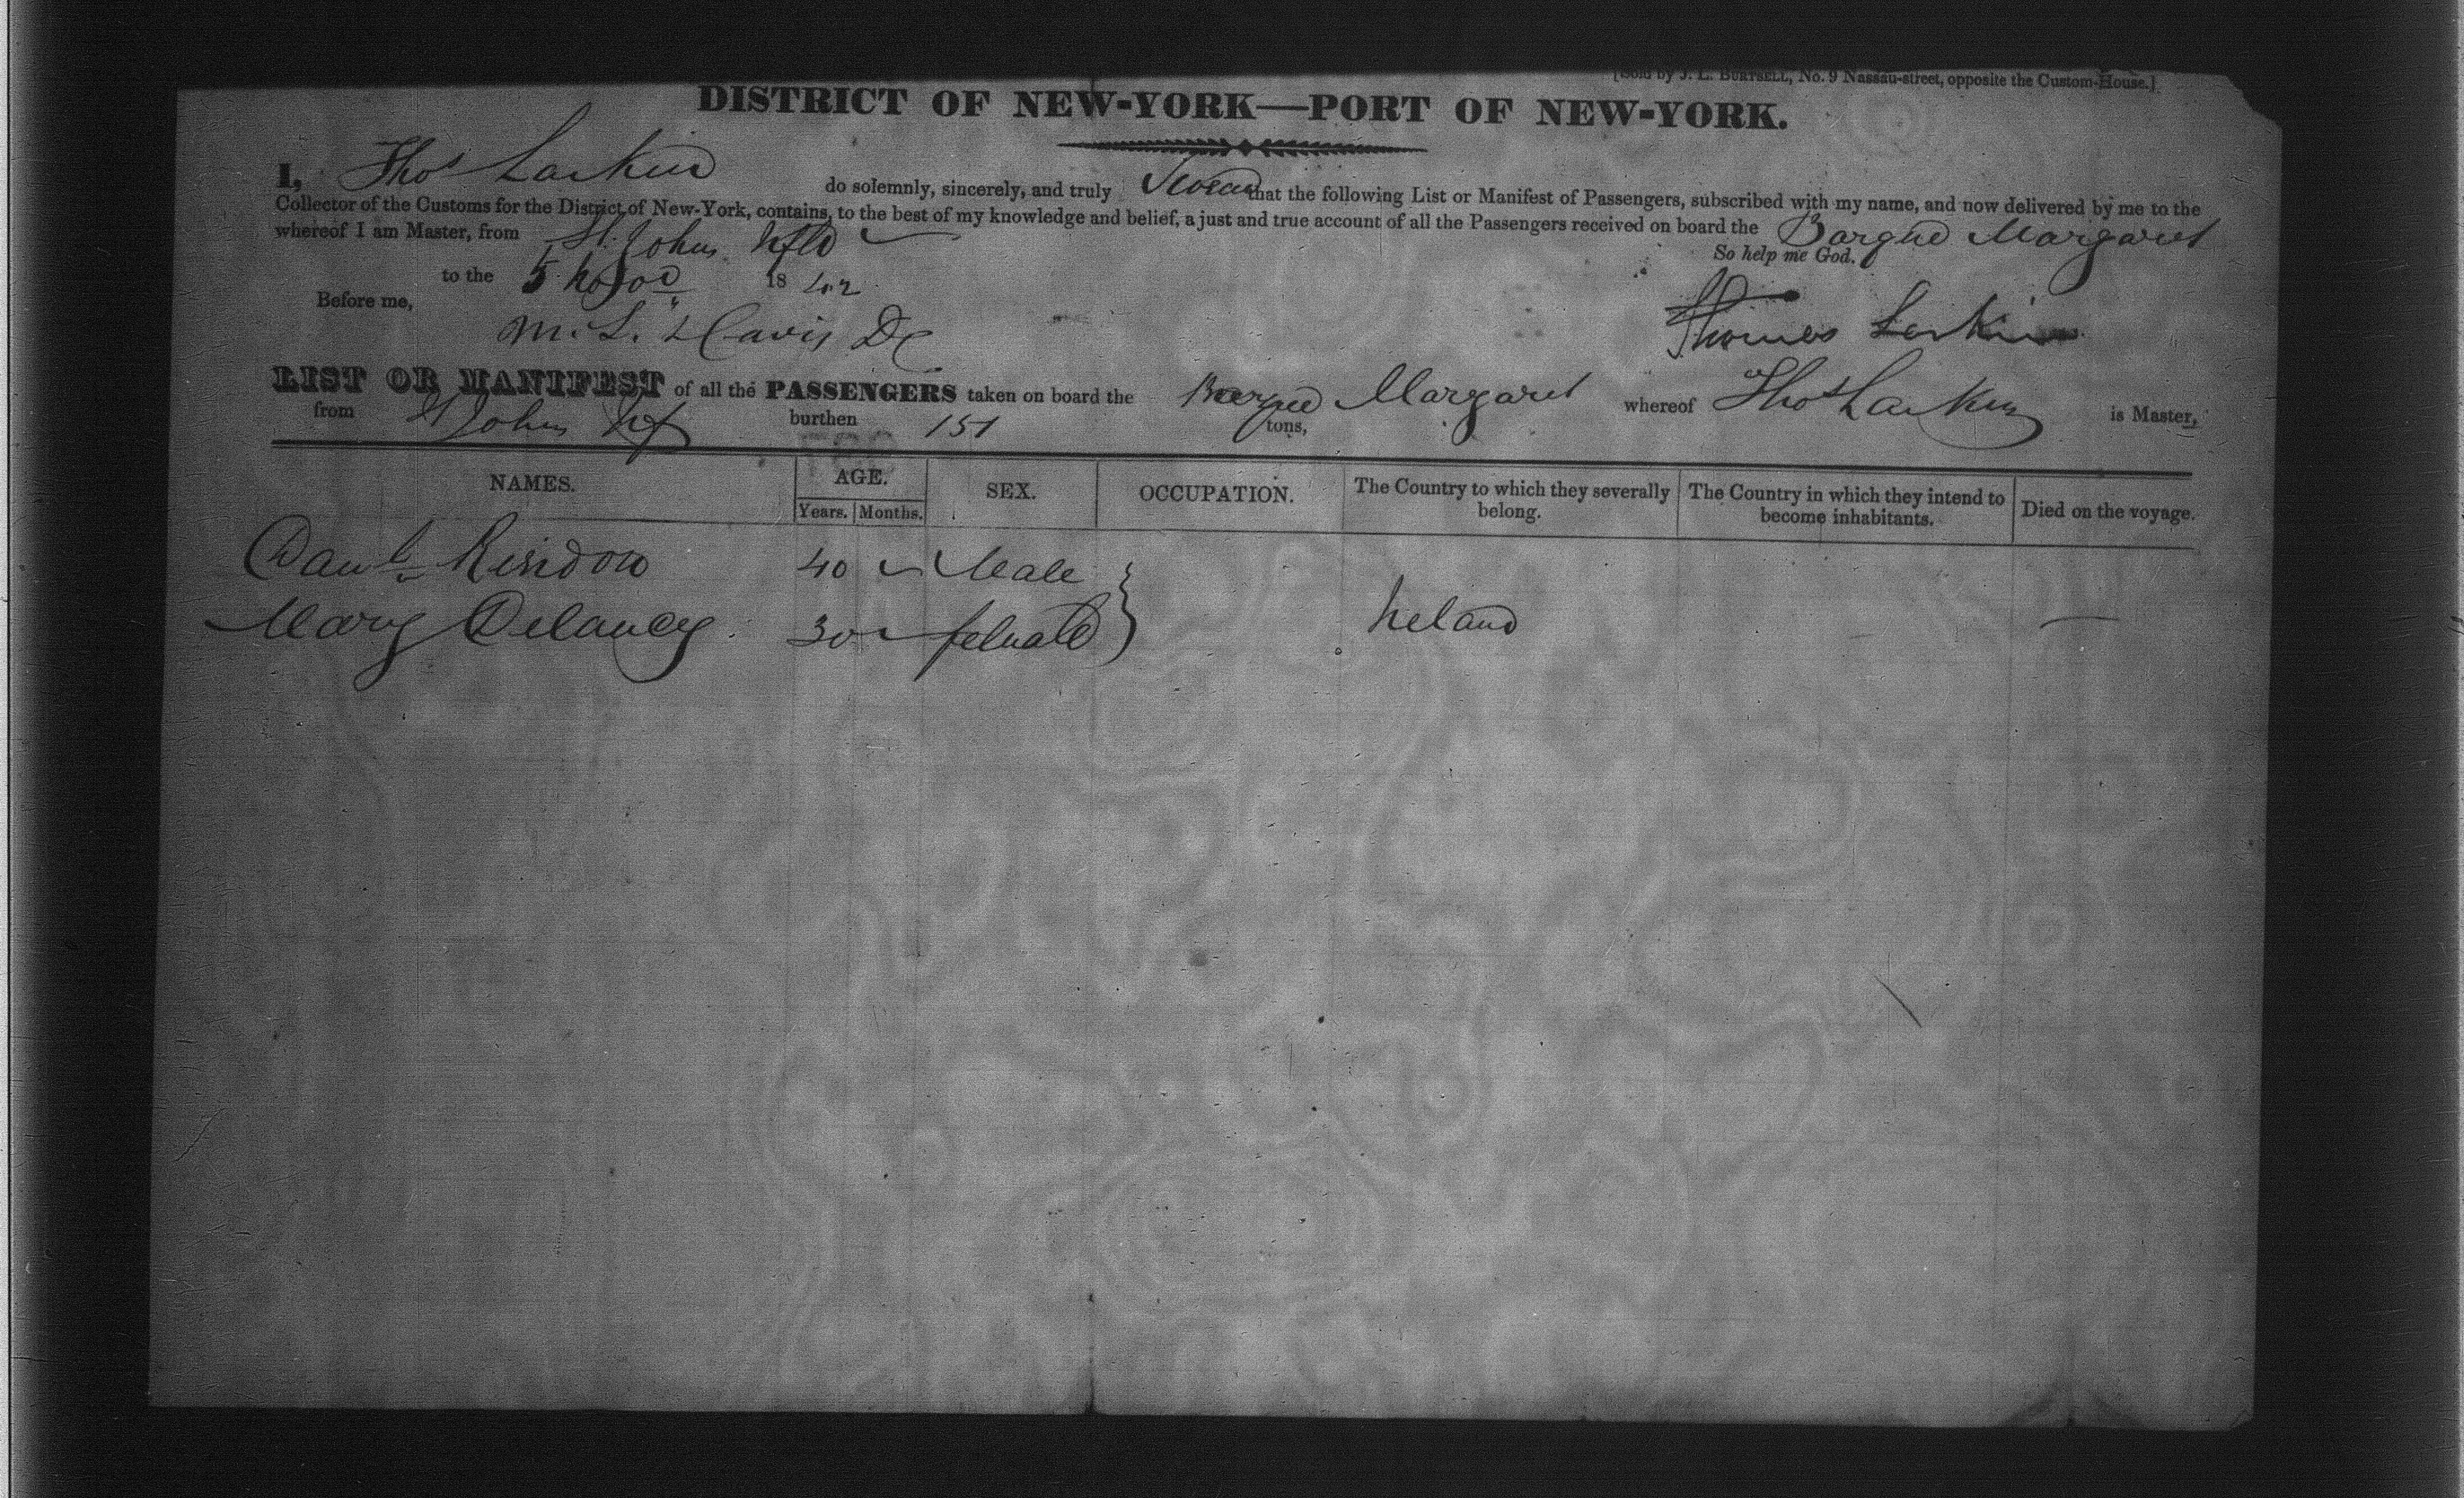 [Sold by J. L. BURTSELL, No. 9 Nassau-street, opposite the Custom-House.]
DISTRICT OF NEW-YORK—PORT OF NEW-YORK.
I, Thos Larkin do solemnly, sincerely, and truly Swear that the following List or Manifest of Passengers, subscribed with my name, and now delivered by me to the
Collector of the Customs for the District of New-York, contains, to the best of my knowledge and belief, a just and true account of all the Passengers received on board the Barque Margaret
whereof I am Master, from St. Johns Nfld
So help me God.
to the 5 Nov 1842
Before me,
Thomas Larkin
M. L. Davis DC
LIST OR MANIFEST of all the PASSENGERS taken on board the Barque Margaret whereof Thos Larkin is Master,
from St Johns Nf burthen 151 tons,
NAMES. AGE. SEX. OCCUPATION. The Country to which they severally belong. The Country in which they intend to become inhabitants. Died on the voyage.
Years. Months.
Danl 40 Male
Mary Delaney 30 female Ireland —